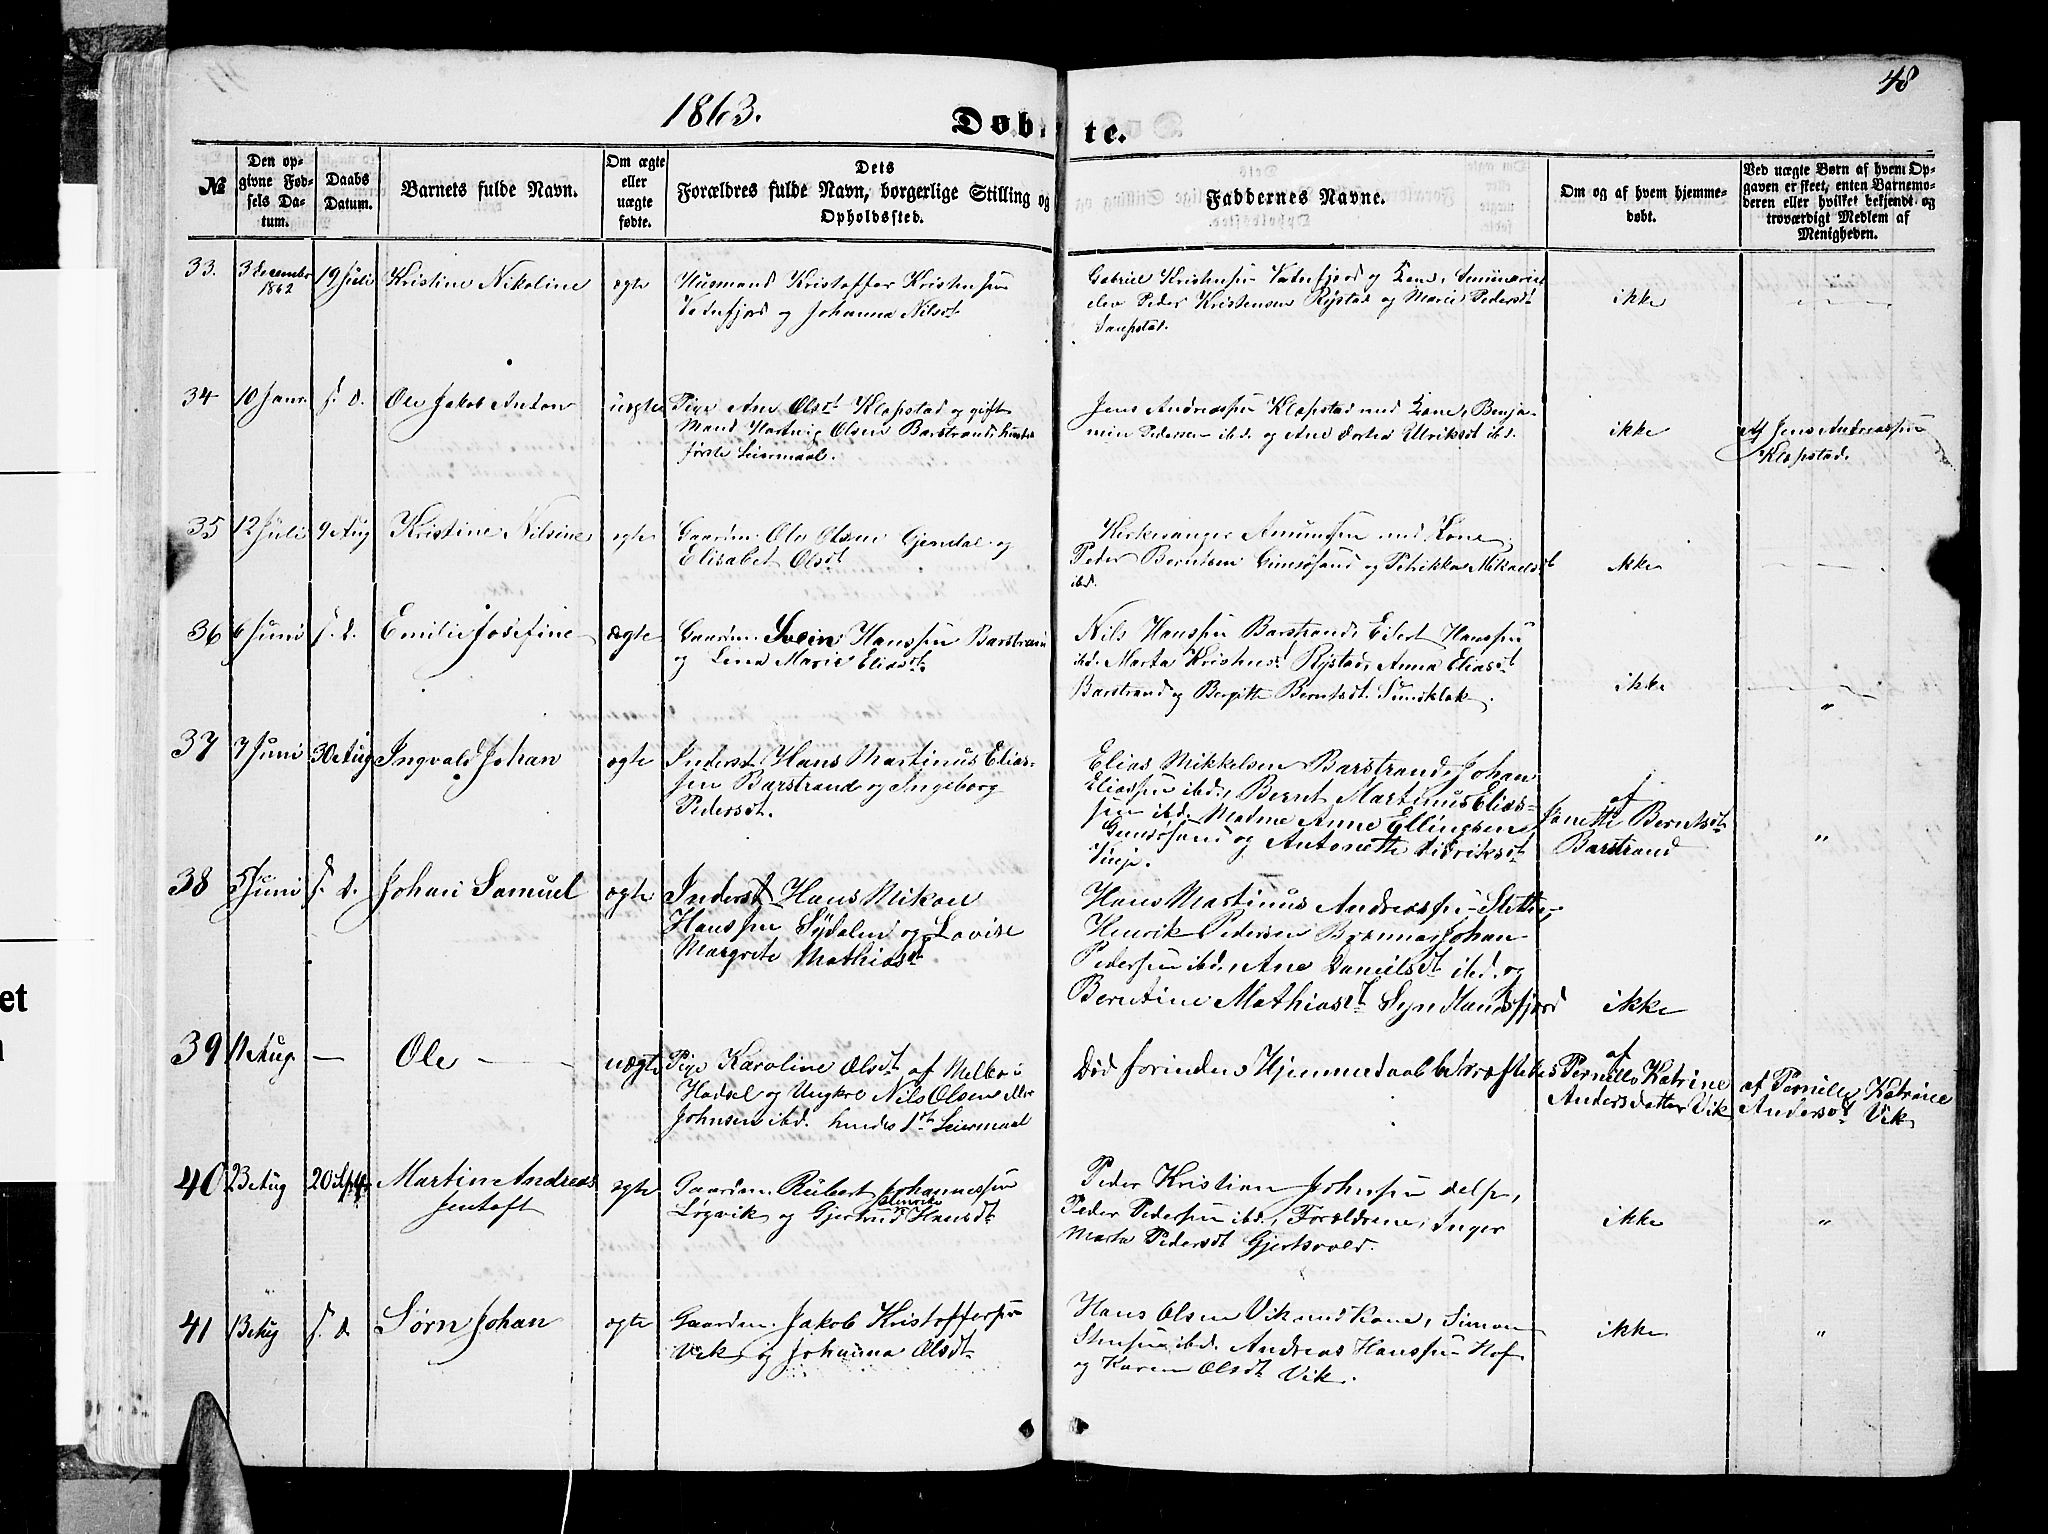 48
1863.
Døbte.
№
Den opgivne Fødsels Datum.
Daabs Datum.
Barnets fulde Navn.
Om ægte eller uægte fødte.
Dets Forældres fulde Navn, borgerlige Stilling og Opholdssted.
Faddernes Navne.
Om og af hvem hjemmedøbt.
Ved uægte Børn af hvem Opgaven er skeet, enten Barnemoderen eller hvilket bekjendt og troværdigt Medlem af Menigheden.
33. 3 December 1862 19 Juli Kristine Nikoline ægte
Husmand Kristoffer Kristensen
Vatnfjord og Johanna Nilsdt
Gabriel Kristensen Vatnfjord og Kone, Seminarie
elev Peder Kristensen Rystad og Marie Pedersdt
ikke
34 10 Janr. s. d. Ole Jakob Anton uægte
Pige Ane Olsdt Klopstad og gift
Mand Hartvig Olsen Barstrand, hendes
første Leiermaal.
Jens Andreassen Klopstad med Kone, Benja-
min Pedersen ibd. og Ane Dortea Ulriksdt ibd.
ikke
af Jens Andreassen
Klopstad.
35 12 Juli 9 Aug Kristine Nilsine ægte
Gaardm. Ole Olsen Gjerdal og
Elisabet Olsdt
Kirkesanger Amundsen med Kone,
Peder Berntsen Gimsøsand og Petrikke Mikaelsdt
ibd.
ikke
36 6 Juni s. d. Emilie Josefine ægte
Gaardm. Svein Hanssen Barstrand
og Lena Marie Eliasdt.
Nils Hanssen Barstrand, Eilert Hanssen
ibd. Marta Kristensdt Rystad, Anna Eliasdt
Barstrand og Bergitte Berntsdt. Sundklak.
ikke
"
37 7 Juni 30 Aug Ingvald Johan ægte
Inderst Hans Martinus Elias-
sen Barstrand og Ingeborg
Pedersdt.
Elias Mikkelsen Barstrand, Johan
Eliassen ibd., Bernt Martinus Elias-
sen ibd. Madme Anne Ellingsen
Gimsøsand og Antonette Didriksdt
Vinje.
af
Janette Berntsdt
Barstrand
"
38 5 Juni s. d. Johan Samuel ægte
Inderst Hans Mikal
Hanssen Sydalen og Lovise
Margrete Mathiasdt
Hans Martinus Andreassen Slette,
Henrik Pedersen Brenna, Johan
Pedersen ibd., Ane Danielsdt ibd. og
Berntine Mathiasdt Syndlandsfjord
ikke
39 11 Aug. — Ole — uægte
Pige Karoline Olsdt af Melbo i
Hadsel og Ungkrl Nils Olsen eller
Johnsen ibd. hendes 1ste Leiermaal
Død forinden Hjemmedaab bekræftedes
af
Pernille Katrine
Andersdatter Vik
af Pernille Katrine
Andersdt Vik
40 23 Aug 20 Septr Martin Andreas
Jentoft
ægte
Gaardm. Rubert Johannessen
Henrikke
Løgvik og Gjertrud Hansdt
Peder Kristian Johnsen dels.,
Peder Pedersen ibd., Forældrene, Inger
Marta Pedersdt Gjertsvold.
ikke
"
41 13 Aug s. d. Sørn Johan ægte
Gaardm. Jakob Kristoffersen
Vik og Johanna Olsdt
Hans Olsen Vik med Kone, Simon
Stensen ibd. Andreas Hanssen Hof
og Karen Olsdt Vik.
ikke
"
et